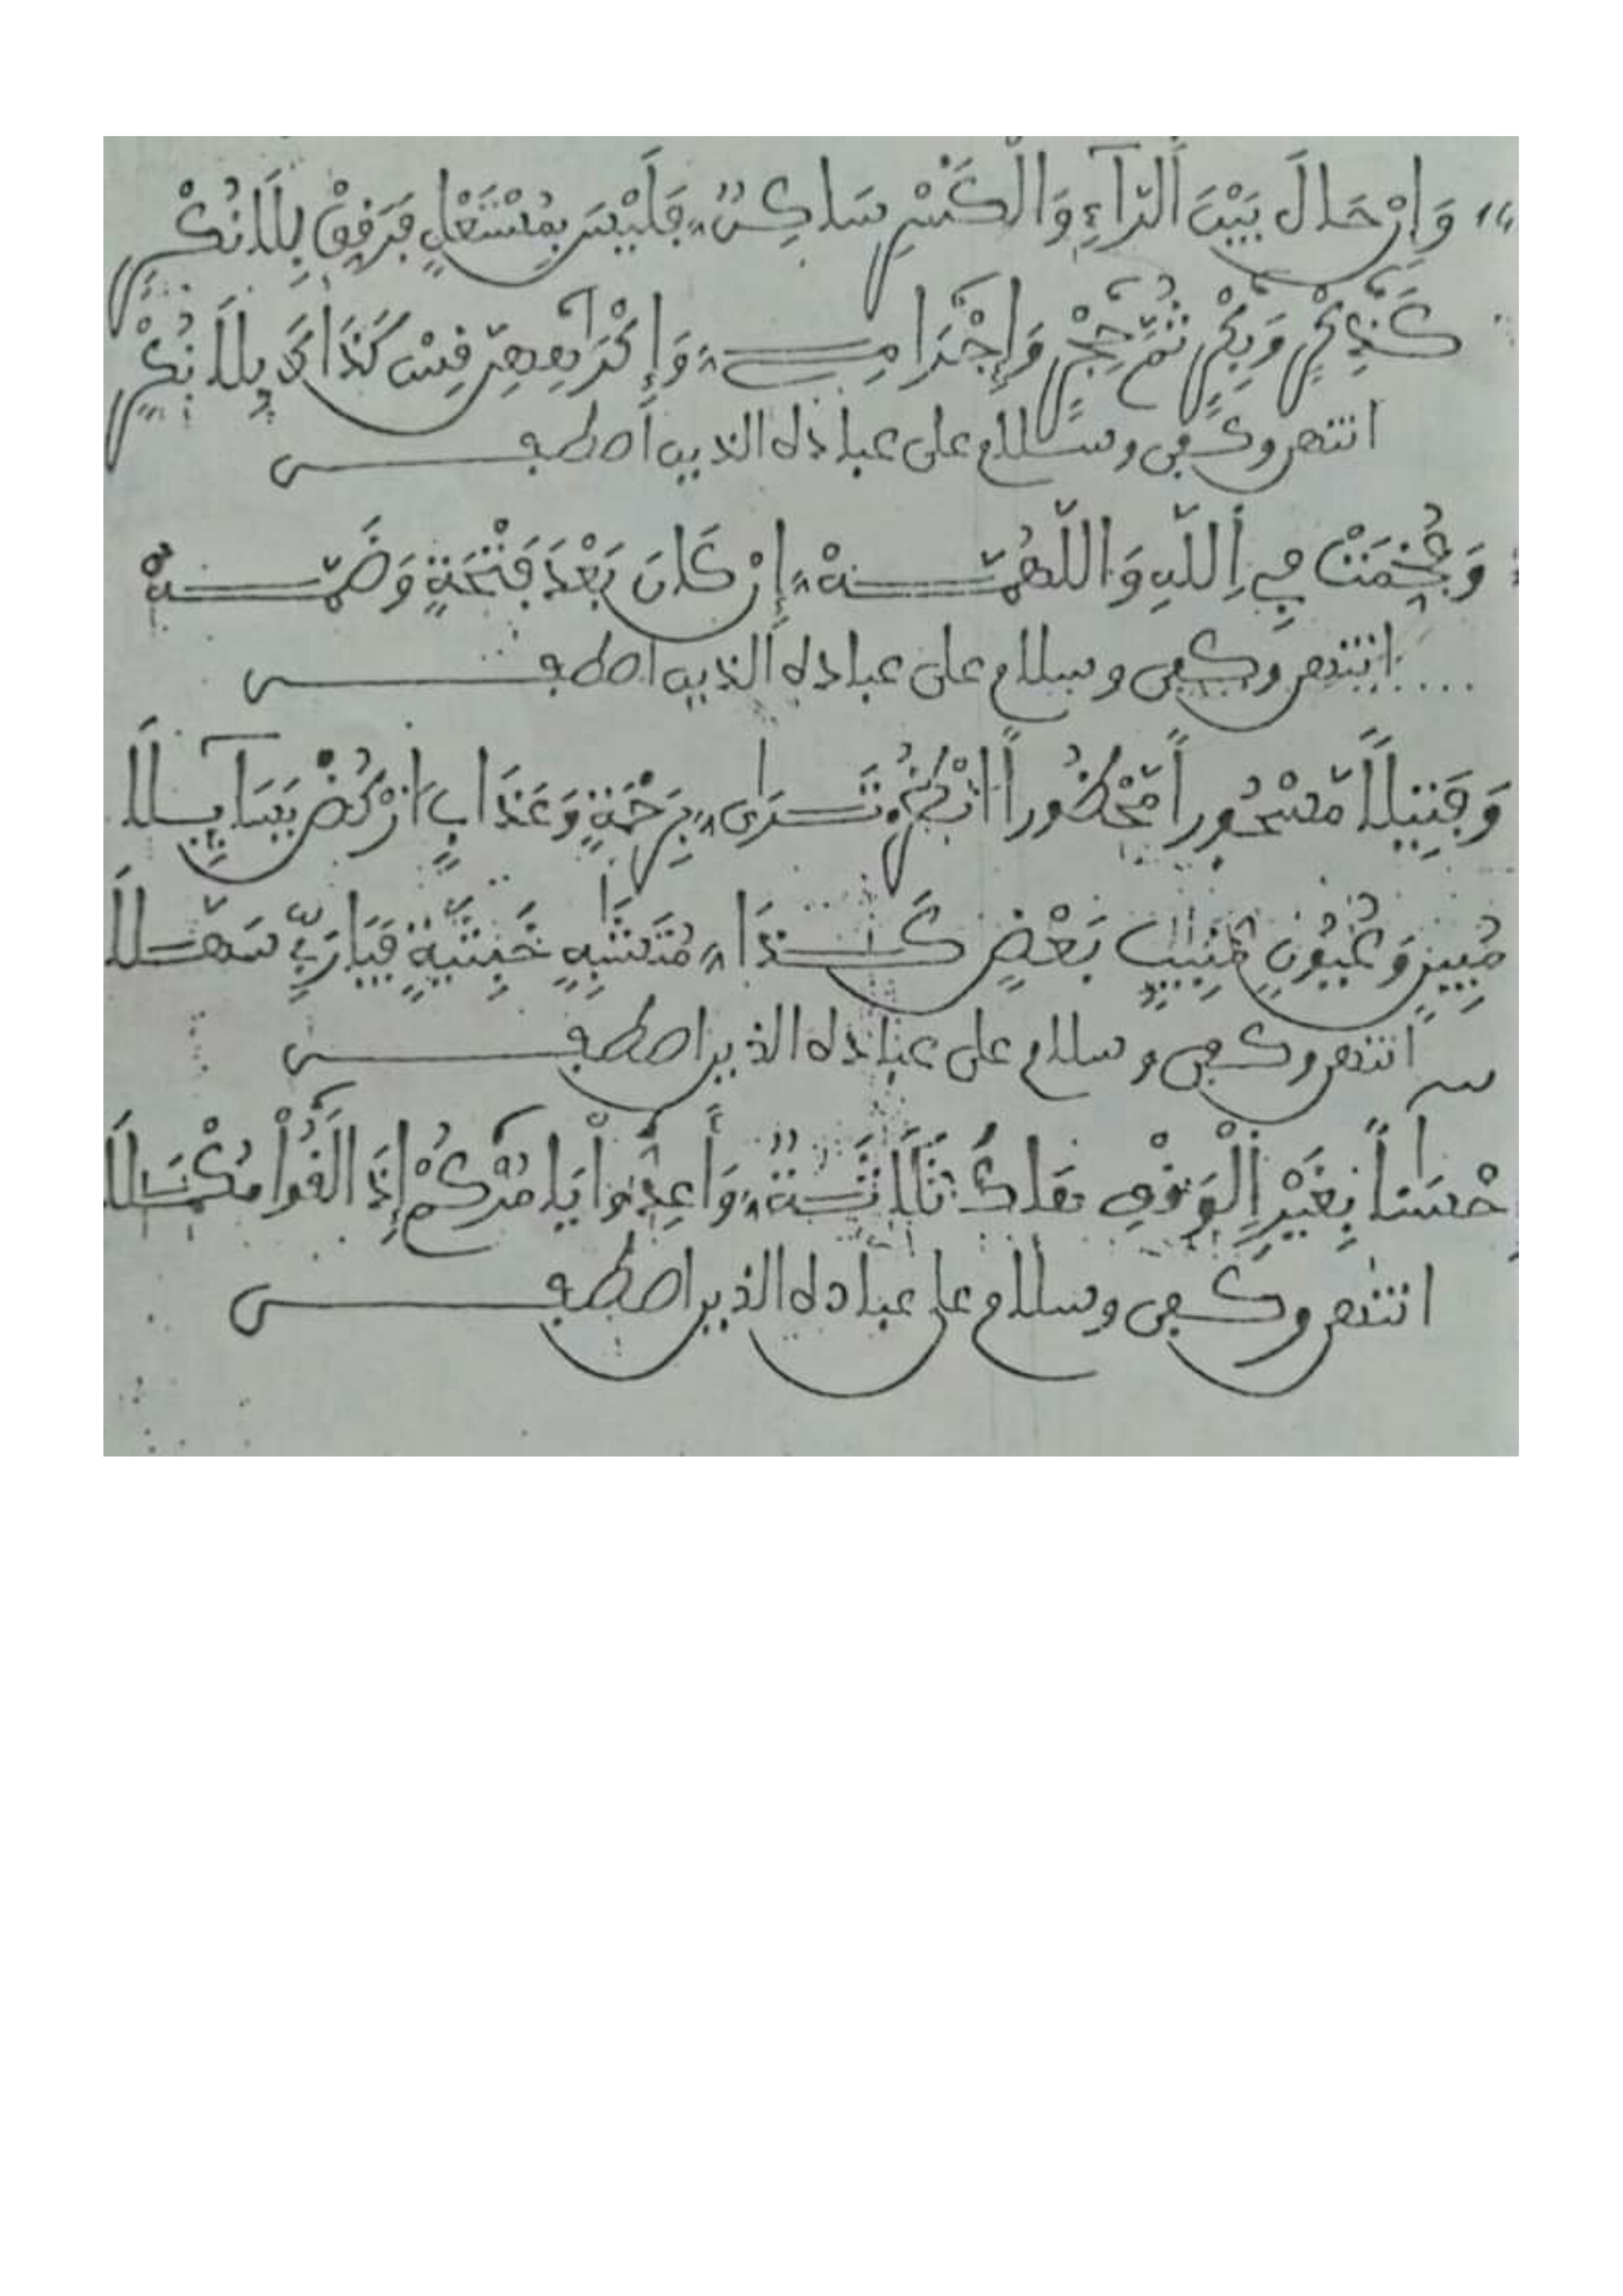 وَإِنْ حَالَ بَيْنَ اَلرَّاءِ وَالْكَسْرِ سَاكِنٌ فَلَيْسَ بِمُسْتَعْلٍ فَرَقِّقْ بِلَا نُكْرِ
كَذِكْرٍ وَبِكْرٍ ثُمَّ حِجْرٍ وَإِجْرَامِي وَإِكْرَاهِهِنَّ قِسْ كَذَاكَ بِلَا نُكْرٍ
انتهى وكفى وسلام على عباده الذين اصطفى
وَفُخِّمَتْ فِي اِللَّهِ وَاللَّهُمَّهْ إِنْ كَانَ بَعْدَ فَتْحَةٍ وَضَمَّهْ
انتهى وكفى وسلام على عباده الذين اصطفى
وَفَتِيلًا مَّسْحُورًا مَّحْظُورًا انْظُرْ تَرَى بِرَحْمَةٍ وَعَذَابٍ ارْكُضْ
مُبِينٍ وَعُيُونٍ مُنِيبٍ بَعْضٍ كَذَا مُتَشَابِهٍ خَبِيثَةٍ فَيَا رَبِّ سَهِّلَا
انتهى وكفى وسلام على عباده الذين اصطفى
بِغَيْرِ اِلْوَقْفِ ثَلَاثَةٌ وَأَعِدُّوا
انتهى وكفى وسلام على عباده الذين اصطفى